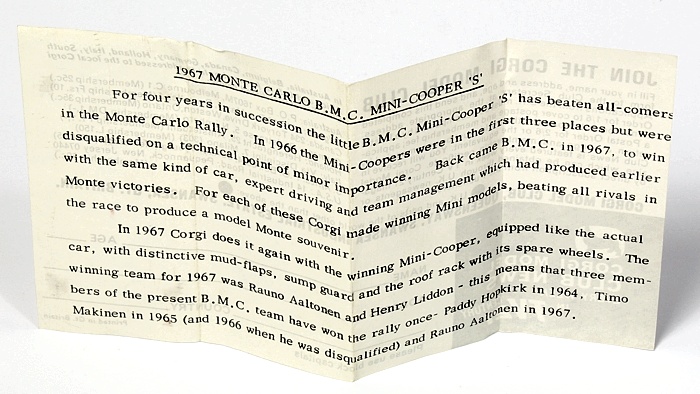 1967 MONTE CARLO B.M.C. MINI-COOPER 'S'
For four years in succession the little B.M.C. Mini-Cooper 'S' has beaten all-comers
in the Monte Carlo Rally. In 1966 the Mini-Coopers were in the first three places but were
disqualified on a technical point of minor importance. Back came B.M.C. in 1967, to win
with the same kind of car, expert driving and team management which had produced earlier
Monte victories. For each of these Corgi made winning Mini models, beating all rivals in
the race to produce a model Monte souvenir.
In 1967 Corgi does it again with the winning Mini-Cooper, equipped like the actual
car, with distinctive mud-flaps, sump guard and the roof rack with its spare wheels. The
winning team for 1967 was Rauno Aaltonen and Henry Liddon - this means that three mem-
bers of the present B.M.C. team have won the rally once- Paddy Hopkirk in 1964, Timo
Makinen in 1965 (and 1966 when he was disqualified) and Rauno Aaltonen in 1967.
JOIN THE CORGI MODEL CLUB